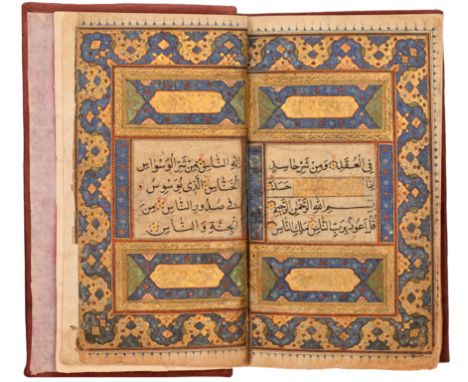 فِي الْعُقَدِ وَمِنْ شَرِّ حَاسِدٍ
إِذَا حَسَدَ
بِسْمِ اللهِ الرَّحْمٰنِ الرَّحِيمِ
قُلْ أَعُوذُ بِرَبِّ النَّاسِ مَلِكِ النَّاسِ
إِلٰهِ النَّاسِ مِنْ شَرِّ الْوَسْوَاسِ
الْخَنَّاسِ الَّذِي يُوَسْوِسُ
فِي صُدُورِ النَّاسِ مِنَ
الْجِنَّةِ وَالنَّاسِ